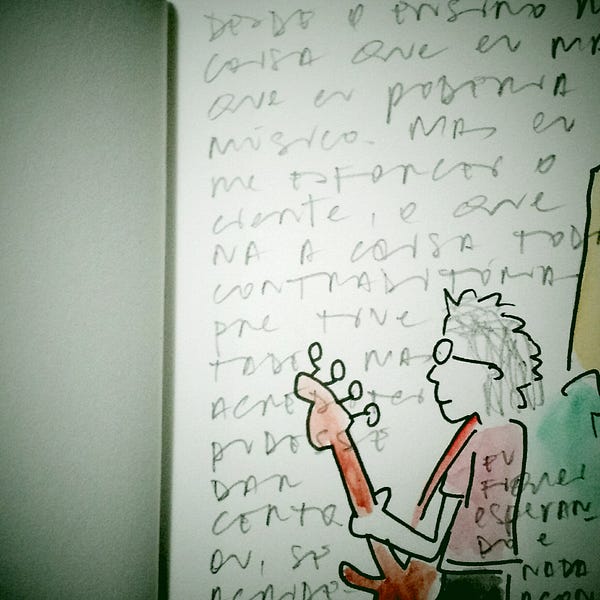 DESDE O ENSINO M
COISA QUE EU MA
QUE EU PODERIA
MÚSICO. MAS EU
ME ESFORCEI O
CIENTE, O QUE
NA A COISA TODA
CONTRADITÓRIA
PRE TIVE
MAS
PUDESSE
DAR
CERTO
OU, SE
EU
FIQUEI
ESPERAN-
DO E
NADA
ACON